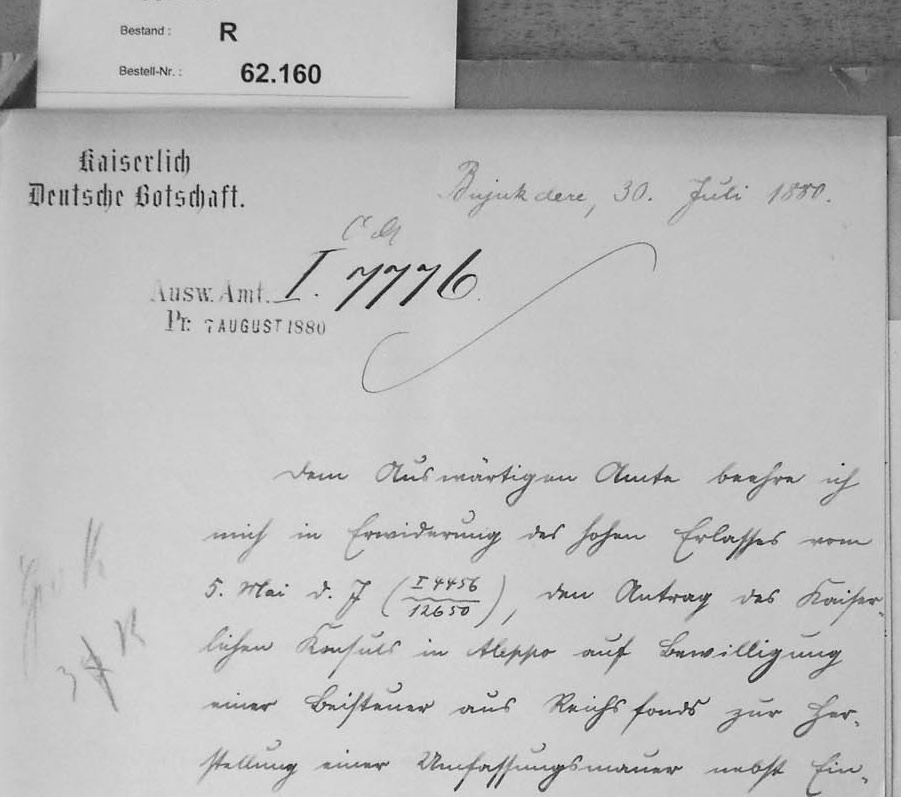 Bestand : R
Bestell-Nr. : 62.160
Kaiserlich
Deutsche Botschaft.
Bujukdere, 30. Juli 1880.
Ausw. Amt. I. 7776.
Pr. 7 AUGUST 1880
Dem Auswärtigen Amte beehre ich
mich in Erwiderung des hohen Erlasses vom
5. Mai d. J (I 4456
12650), den Antrag des Kaiser-
lichen Konsuls in Aleppo auf Bewilligung
einer Beisteuer aus Reichsfonds zur Her-
stellung einer Umfassungsmauer nebst Ein-